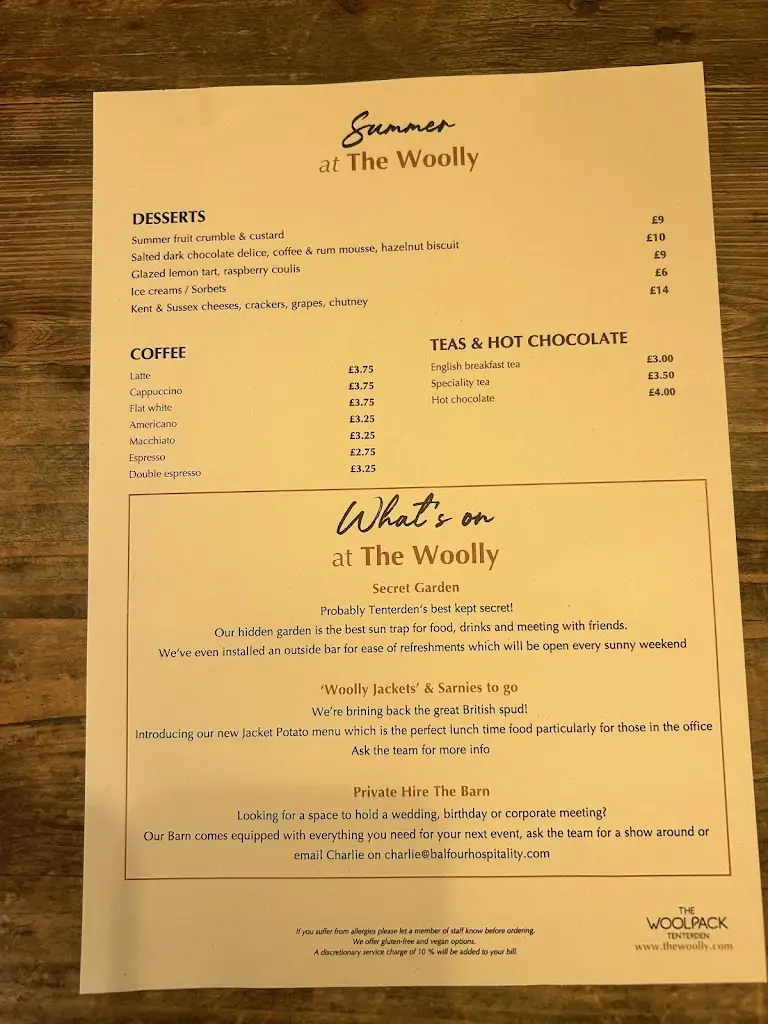 Summer
at The Woolly
DESSERTS
Summer fruit crumble & custard £9
Salted dark chocolate delice, coffee & rum mousse, hazelnut biscuit £10
Glazed lemon tart, raspberry coulis £9
Ice creams / Sorbets £6
Kent & Sussex cheeses, crackers, grapes, chutney £14
COFFEE
Latte £3.75
Cappuccino £3.75
Flat white £3.75
Americano £3.25
Macchiato £3.25
Espresso £2.75
Double espresso £3.25
TEAS & HOT CHOCOLATE
English breakfast tea £3.00
Speciality tea £3.50
Hot chocolate £4.00
What's on
at The Woolly
Secret Garden
Probably Tenterden's best kept secret!
Our hidden garden is the best sun trap for food, drinks and meeting with friends.
We've even installed an outside bar for ease of refreshments which will be open every sunny weekend
'Woolly Jackets' & Sarnies to go
We're brining back the great British spud!
Introducing our new Jacket Potato menu which is the perfect lunch time food particularly for those in the office
Ask the team for more info
Private Hire The Barn
Looking for a space to hold a wedding, birthday or corporate meeting?
Our Barn comes equipped with everything you need for your next event, ask the team for a show around or
email Charlie on charlie@balfourhospitality.com
If you suffer from allergies please let a member of staff know before ordering.
We offer gluten-free and vegan options.
A discretionary service charge of 10 % will be added to your bill.
THE
WOOLPACK
TENTERDEN
www.thewoolly.com